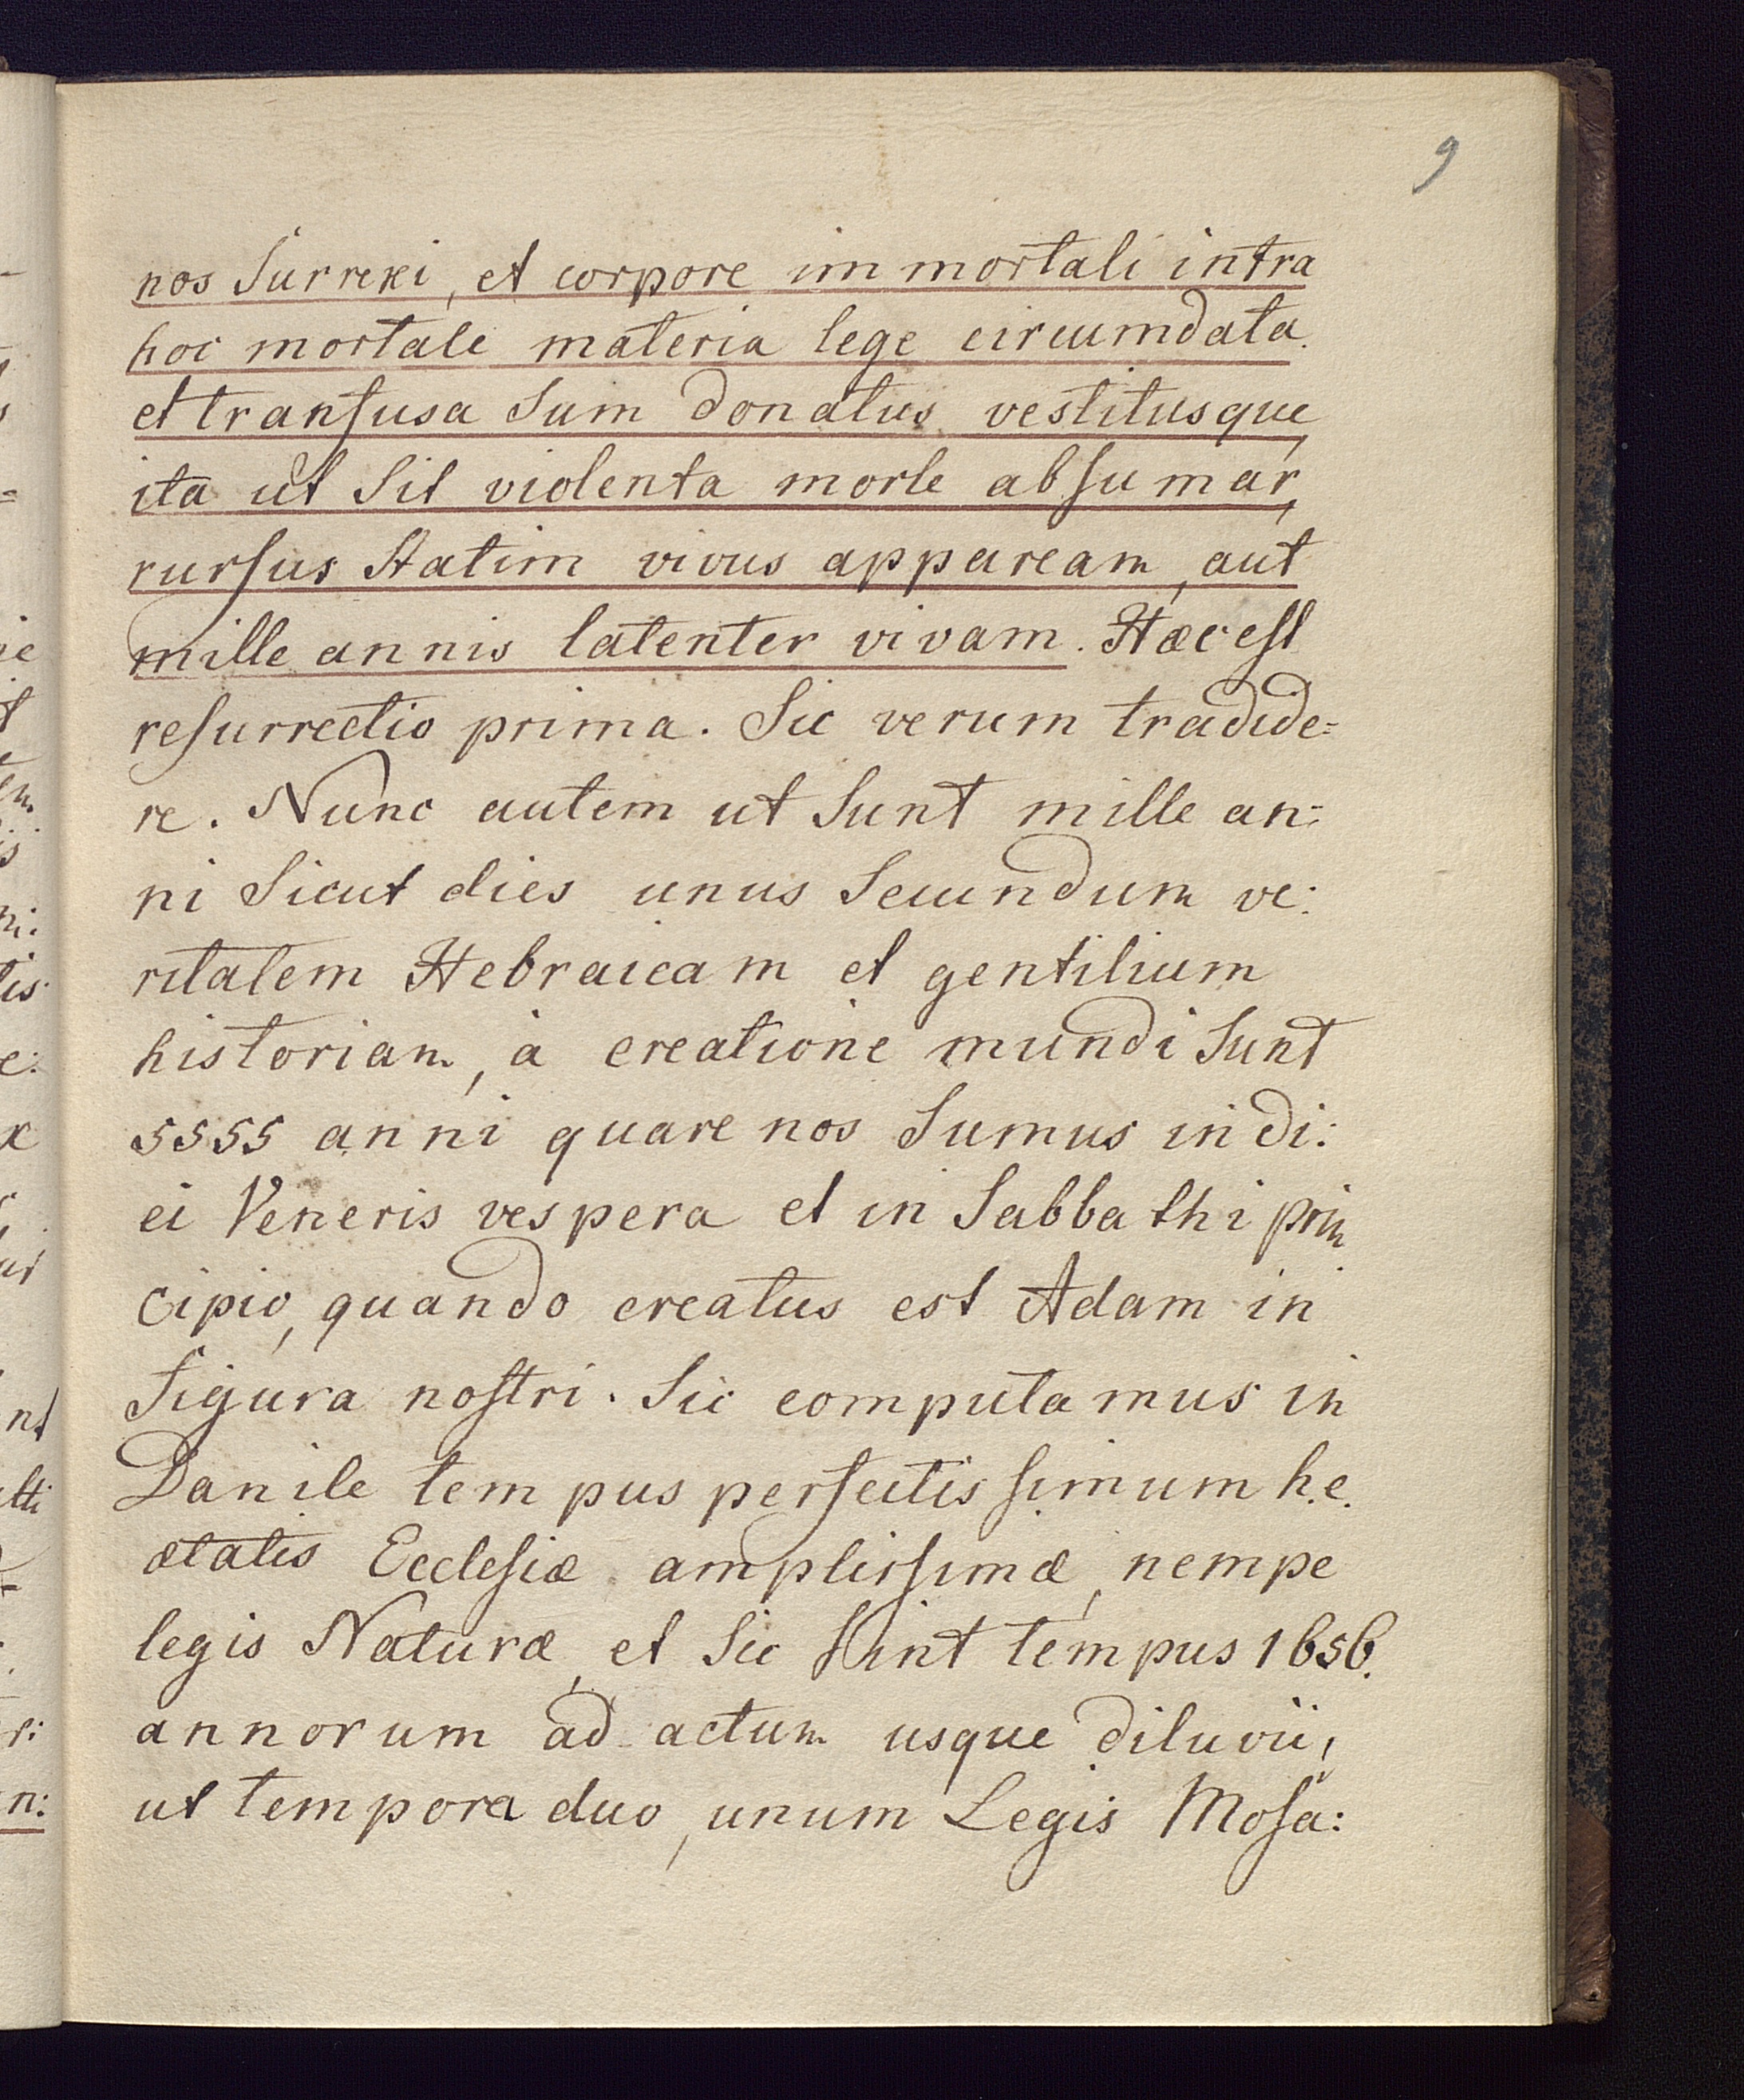 9
nos surrexi, et corpore immortali intra
hoc mortale materia lege circumdata
et transfusa sum donatus vestitusque,
ita ut sit violenta morte absumar,
rursus statim vivus appaream, aut
mille annis latenter vivam. Hæc est
resurrectio prima. Sic verum tradide=
re. Nunc autem ut sunt mille an=
ni sicut dies unus secundum ve:
ritatem Hebraicam et gentilium
historiam, à creatione mundi sunt
5555 anni quare nos sumus in di:
ei Veneris vespera et in Sabbathi prin
cipio, quando creatus est Adam in
figura nostri. Sic computamus in
Danile tempus perfectissimum h.e.
ætatis Ecclesiæ amplissimæ, nempe
legis Naturæ, et sic sunt tempus 1656.
annorum ad actum usque diluvii,
ut tempora duo, unum Legis Mosa: